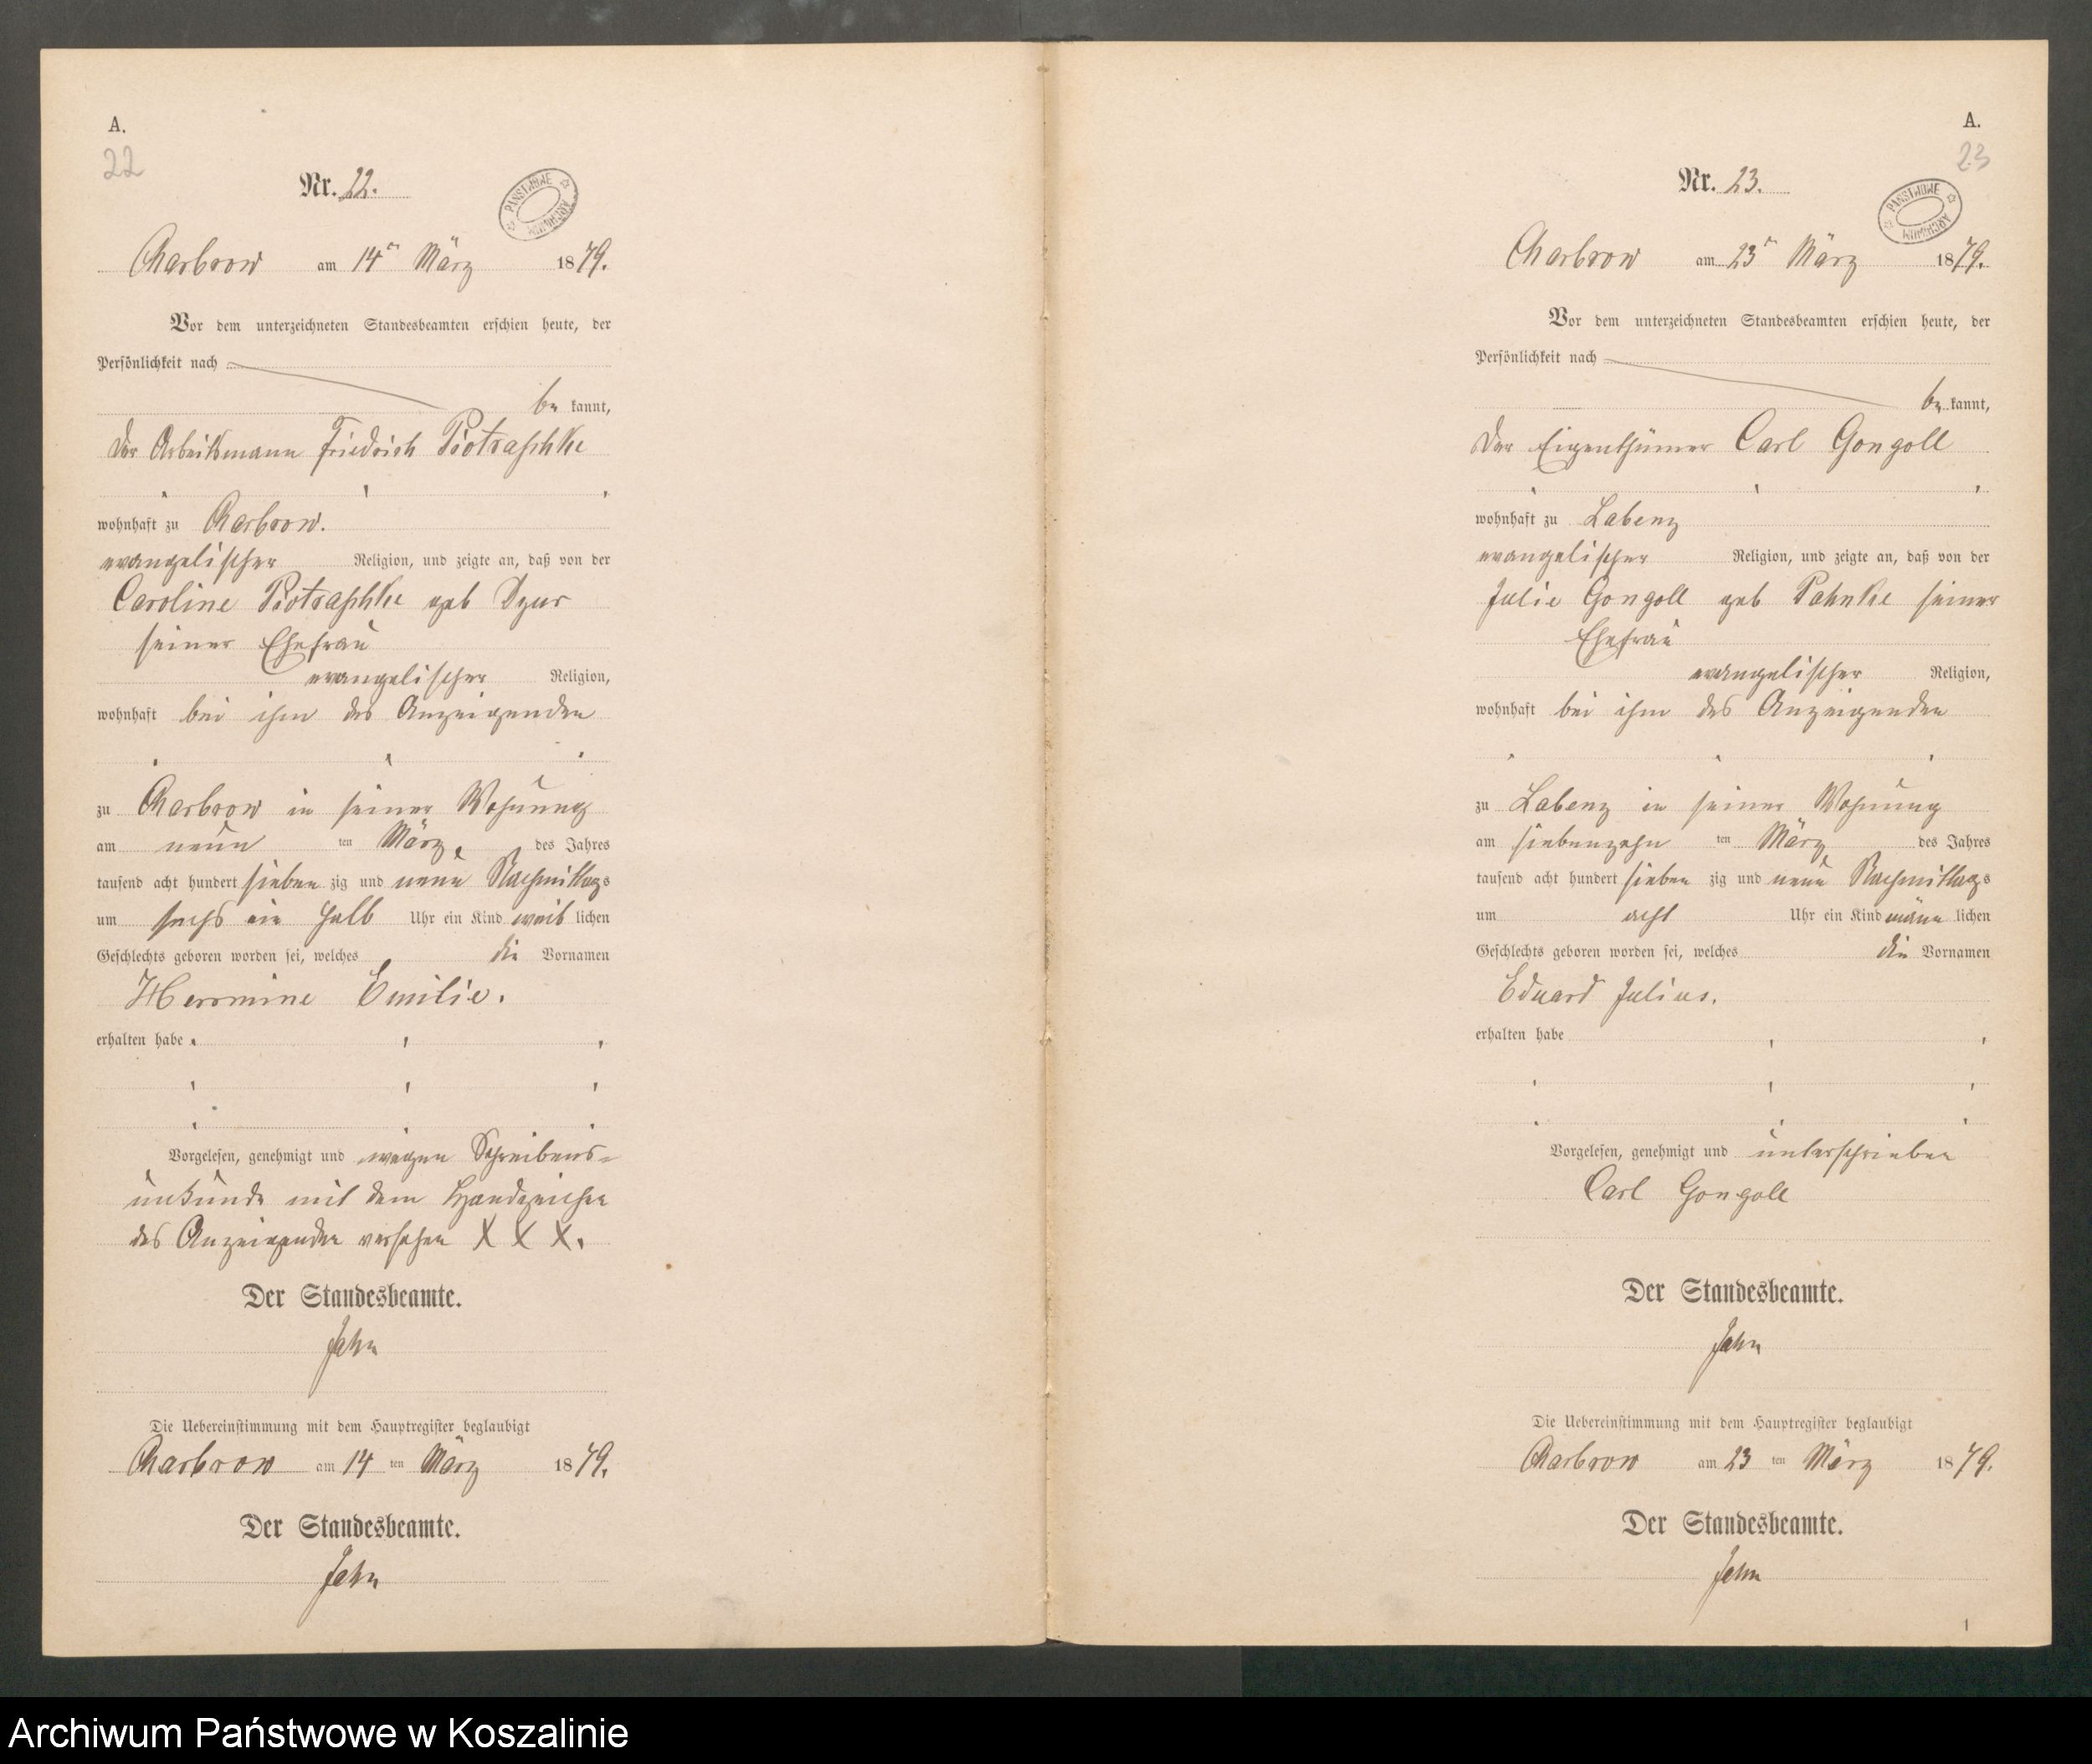 A.
22
Nr. 22.
PAŃSTWOWE ARCHIWUM
Charbrow am 14ⁿ März 1879.
Vor dem unterzeichneten Standesbeamten erschien heute, der
Persönlichkeit nach
be kannt,
der Arbeitsmann Friedrich Piotraschke
wohnhaft zu Charbrow.
evangelischer Religion, und zeigte an, daß von der
Caroline Piotraschke geb Dzur
seiner Ehefrau
evangelischer Religion,
wohnhaft bei ihm des Anzeigenden
zu Charbrow in seiner Wohnung
am neun ten März, des Jahres
tausend acht hundert sieben zig und neun Nachmittags
um sechs ein halb Uhr ein Kind weib lichen
Geschlechts geboren worden sei, welches die Vornamen
Hermine Emilie.
erhalten habe
Vorgelesen, genehmigt und wegen Schreibens-
unkunde mit dem Handzeichen
des Anzeigenden versehen X X X.
Der Standesbeamte.
Jahn
Die Uebereinstimmung mit dem Hauptregister beglaubigt
Charbrow am 14 ten März 1879.
Der Standesbeamte.
Jahn
A.
23
Nr. 23.
PAŃSTWOWE ARCHIWUM
Charbrow am 23ⁿ März 1879.
Vor dem unterzeichneten Standesbeamten erschien heute, der
Persönlichkeit nach
be kannt,
der Eigenthümer Carl Gongoll
wohnhaft zu Labenz
evangelischer Religion, und zeigte an, daß von der
Julie Gongoll geb Pahnke seiner
Ehefrau
evangelischer Religion,
wohnhaft bei ihm des Anzeigenden
zu Labenz in seiner Wohnung
am siebenzehn ten März des Jahres
tausend acht hundert sieben zig und neun Nachmittags
um acht Uhr ein Kind männ lichen
Geschlechts geboren worden sei, welches die Vornamen
Eduard Julius.
erhalten habe
Vorgelesen, genehmigt und unterschrieben
Carl Gongoll
Der Standesbeamte.
Jahn
Die Uebereinstimmung mit dem Hauptregister beglaubigt
Charbrow am 23 ten März 1879.
Der Standesbeamte.
Jahn
1
Archiwum Państwowe w Koszalinie